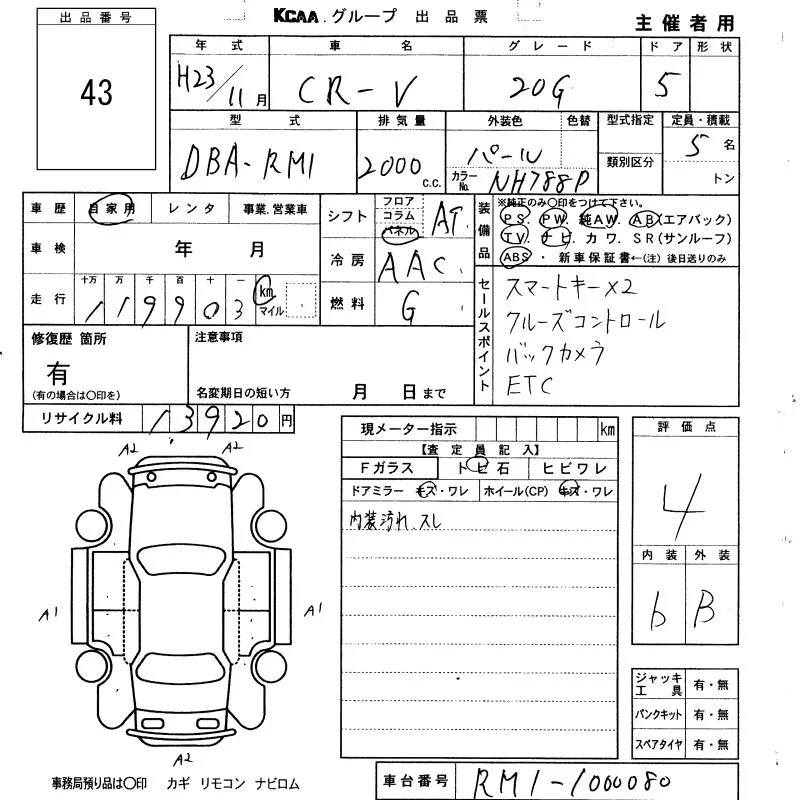 KCAA.グループ 出品票
主催者用
出品番号
43
年式 車名 グレード ドア 形状
H23/11月 CR-V 20G 5
型式 排気量 外装色 色替 型式指定 定員・積載
DBA-RM1 2000 c.c. パール 5名
類別区分
カラーNo. NH788P トン
車歴 自家用 レンタ 事業.営業車
シフト フロア コラム パネル AT
装備品
※純正のみ○印をつけて下さい。
PS. PW. 純AW. AB(エアバック)
TV. ナビ. カワ. SR(サンルーフ)
ABS ・ 新車保証書←(注) 後日送りのみ
車検 年 月
冷房 AAC
走行 十万 万 千 百 十 一
119903 km マイル
燃料 G
セールスポイント
スマートキー×2
クルーズコントロール
バックカメラ
ETC
修復歴 箇所
有
(有の場合は○印を)
注意事項
名変期日の短い方 月 日まで
リサイクル料 13920円
現メーター指示 km
【査定員記入】
Fガラス トビ石 ヒビワレ
ドアミラー キズ・ワレ ホイール(CP) キズ・ワレ
内装汚れ、スレ
評価点
4
内装 外装
b B
A2 A2
A1 A1
A2
ジャッキ工具 有・無
パンクキット 有・無
スペアタイヤ 有・無
事務局預り品は○印 カギ リモコン ナビロム
車台番号 RM1-1000080